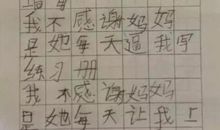 我不感谢妈妈
是她每天逼我写
练习册
我不感谢妈妈
是她每天让我上